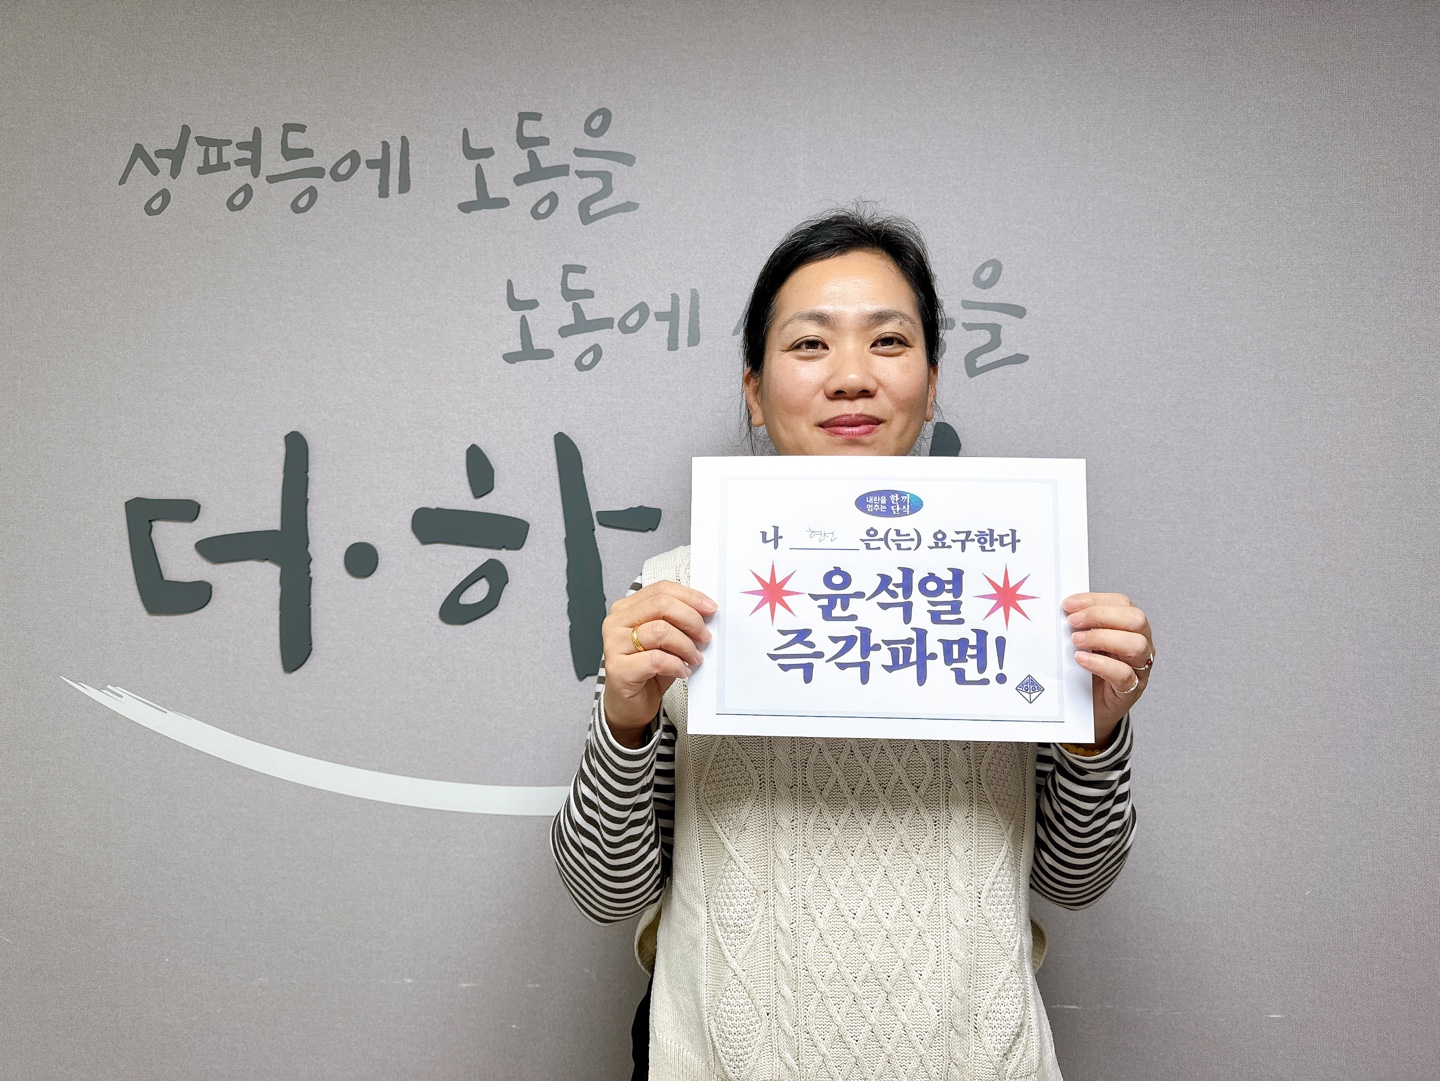 성평등에 노동을
노동에 을
더·하
내란을 한끼
멈추는 단식
나 현선 은(는) 요구한다
윤석열
즉각파면!